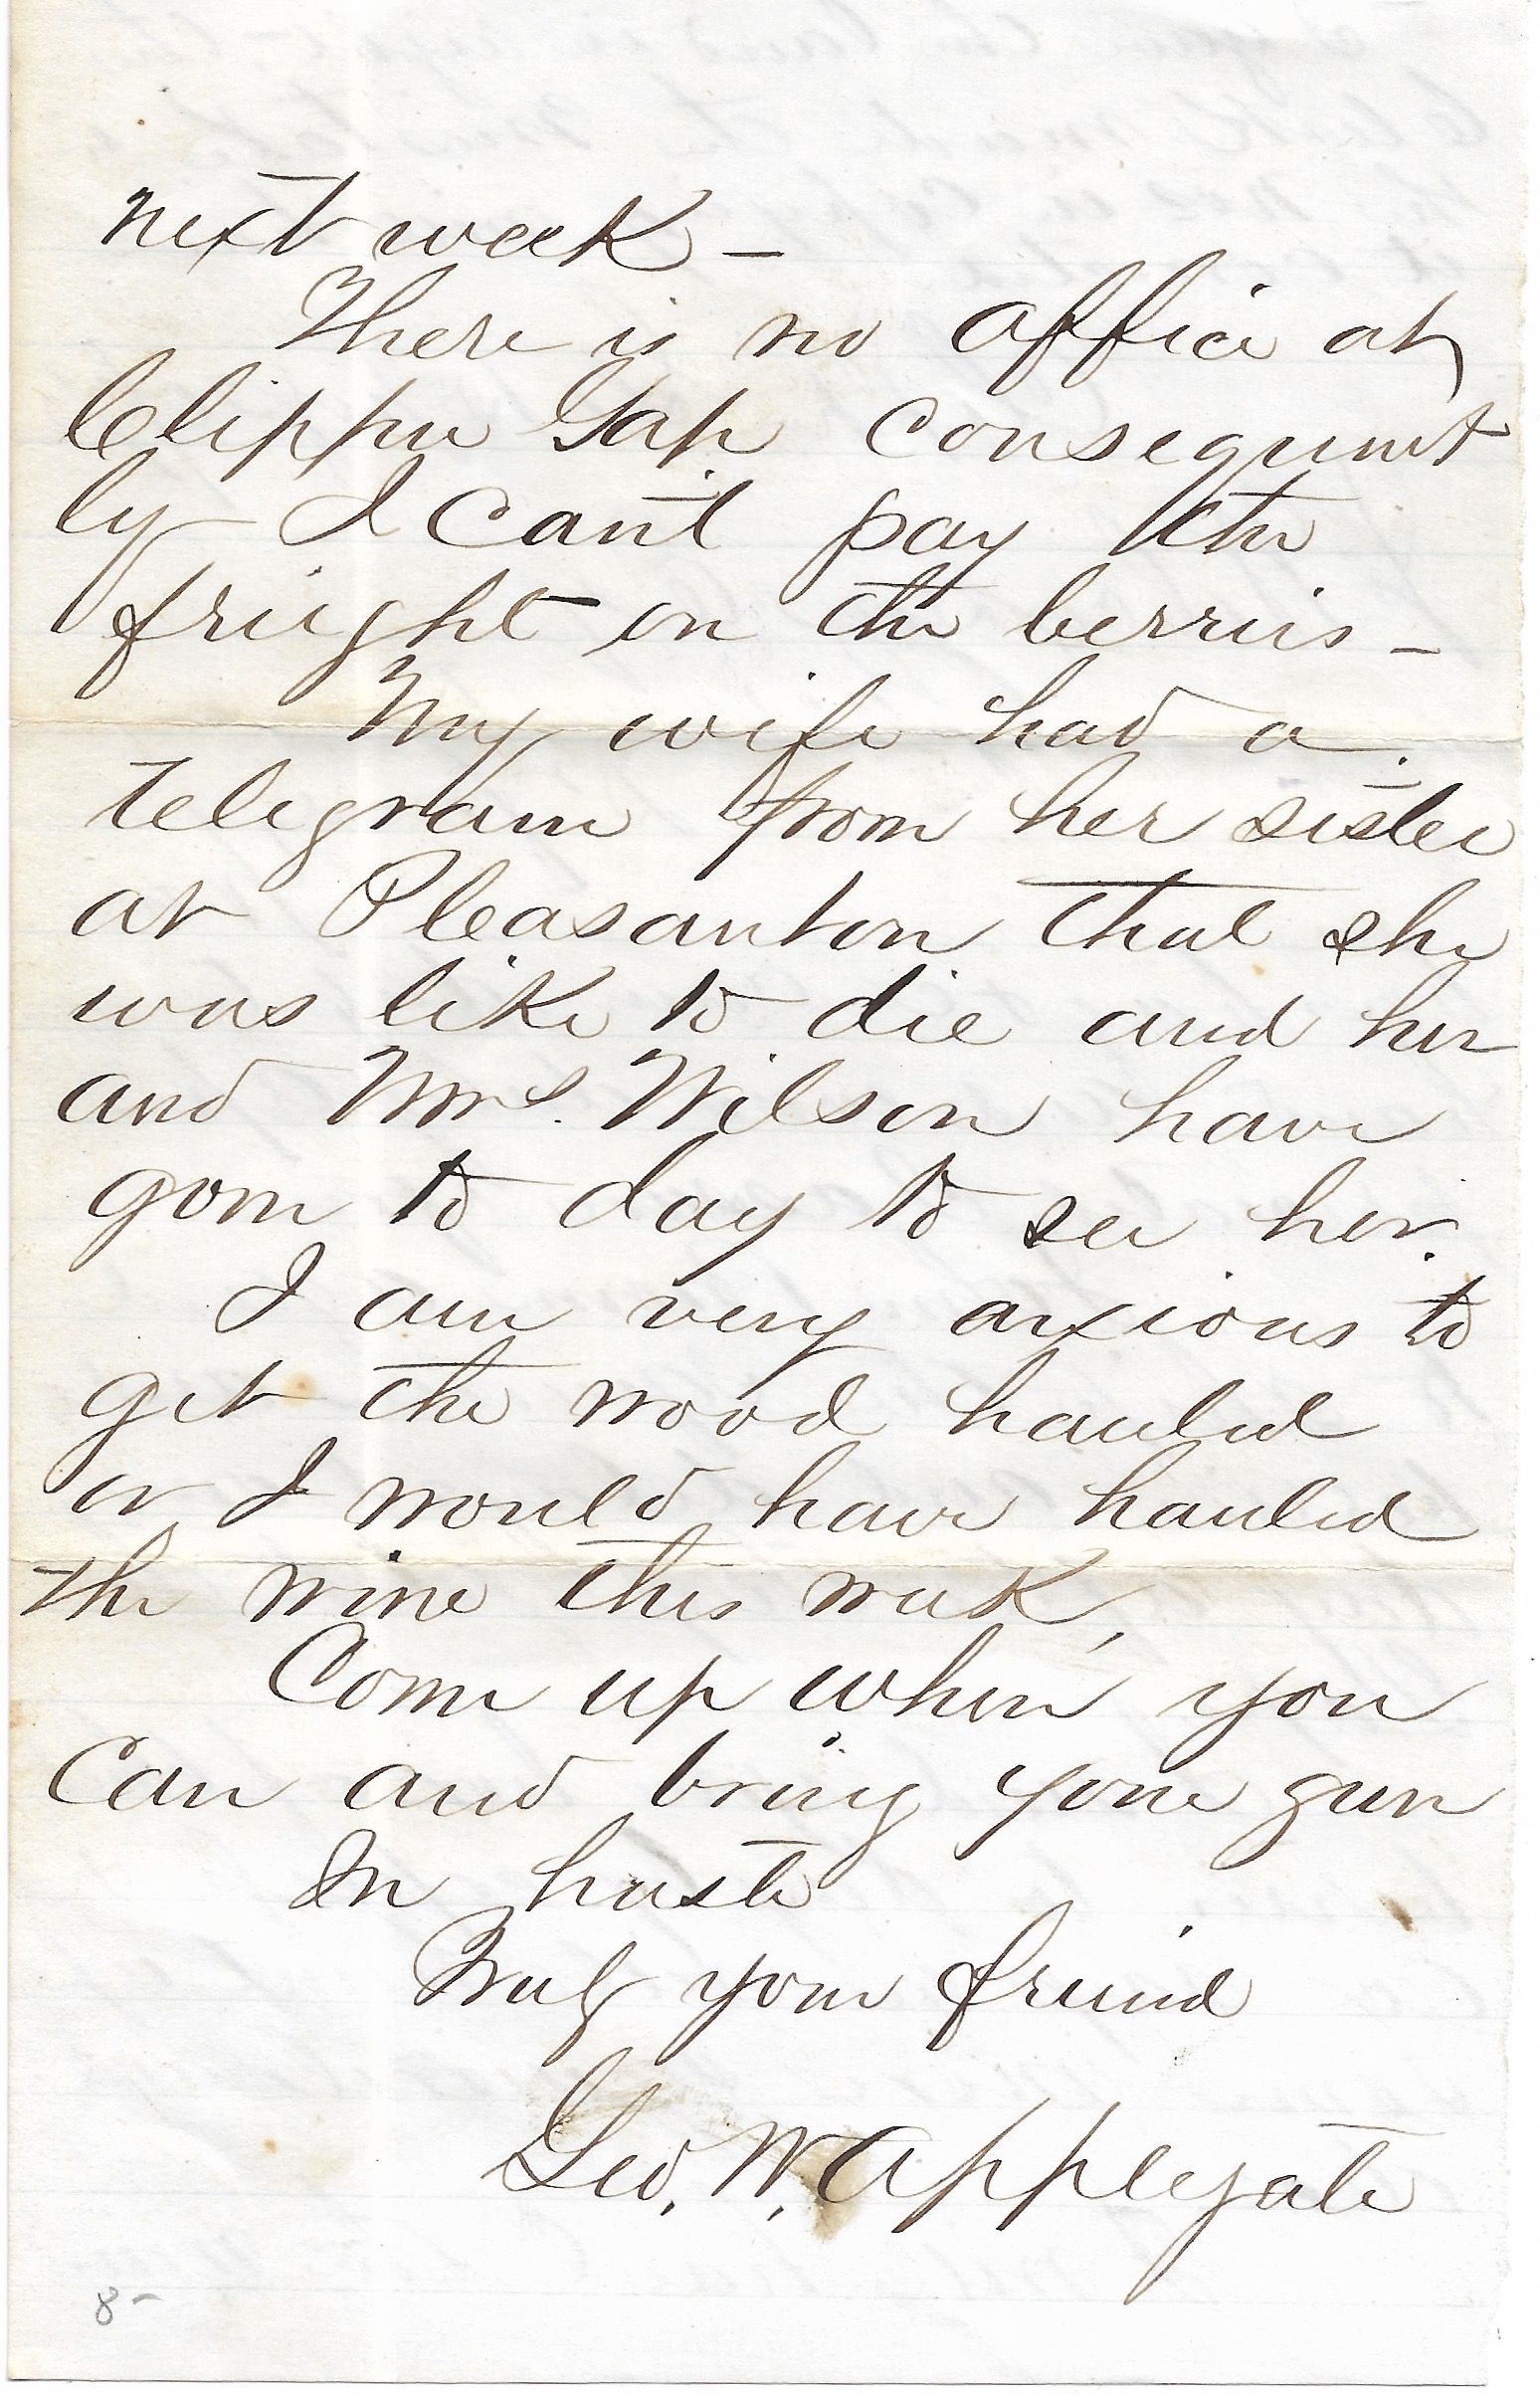 next week –
There is no office at
Clipper Gap consequent
ly I can't pay the
freight on the berries –
My wife had a
telegram from her sister
at Pleasanton that she
was like to die and her
and Mrs. Wilson have
gone to day to see her.
I am very anxious to
get the wood hauled
or I would have hauled
the wine this week,
Come up when you
can and bring your gun
In haste
Truly your friend
Geo. W. Applegate
8–